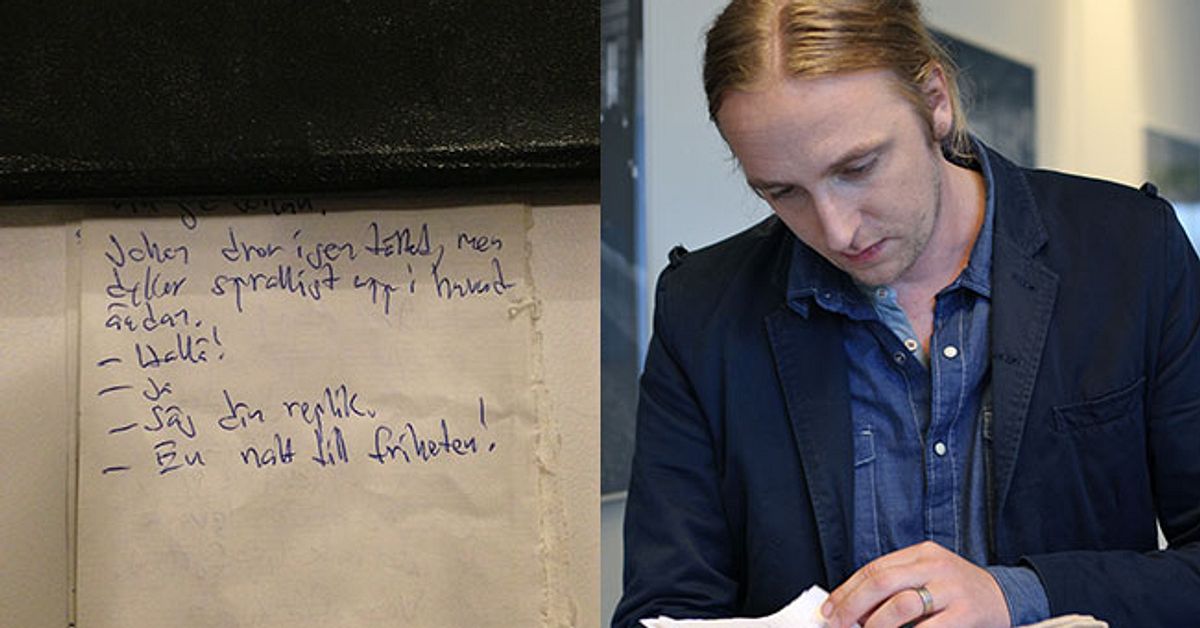 Johan drar igen tältet, men
dyker spralligt upp i huvud
ändan.
– Hallå!
– Ja
– Säg din replik.
– En natt till friheten!